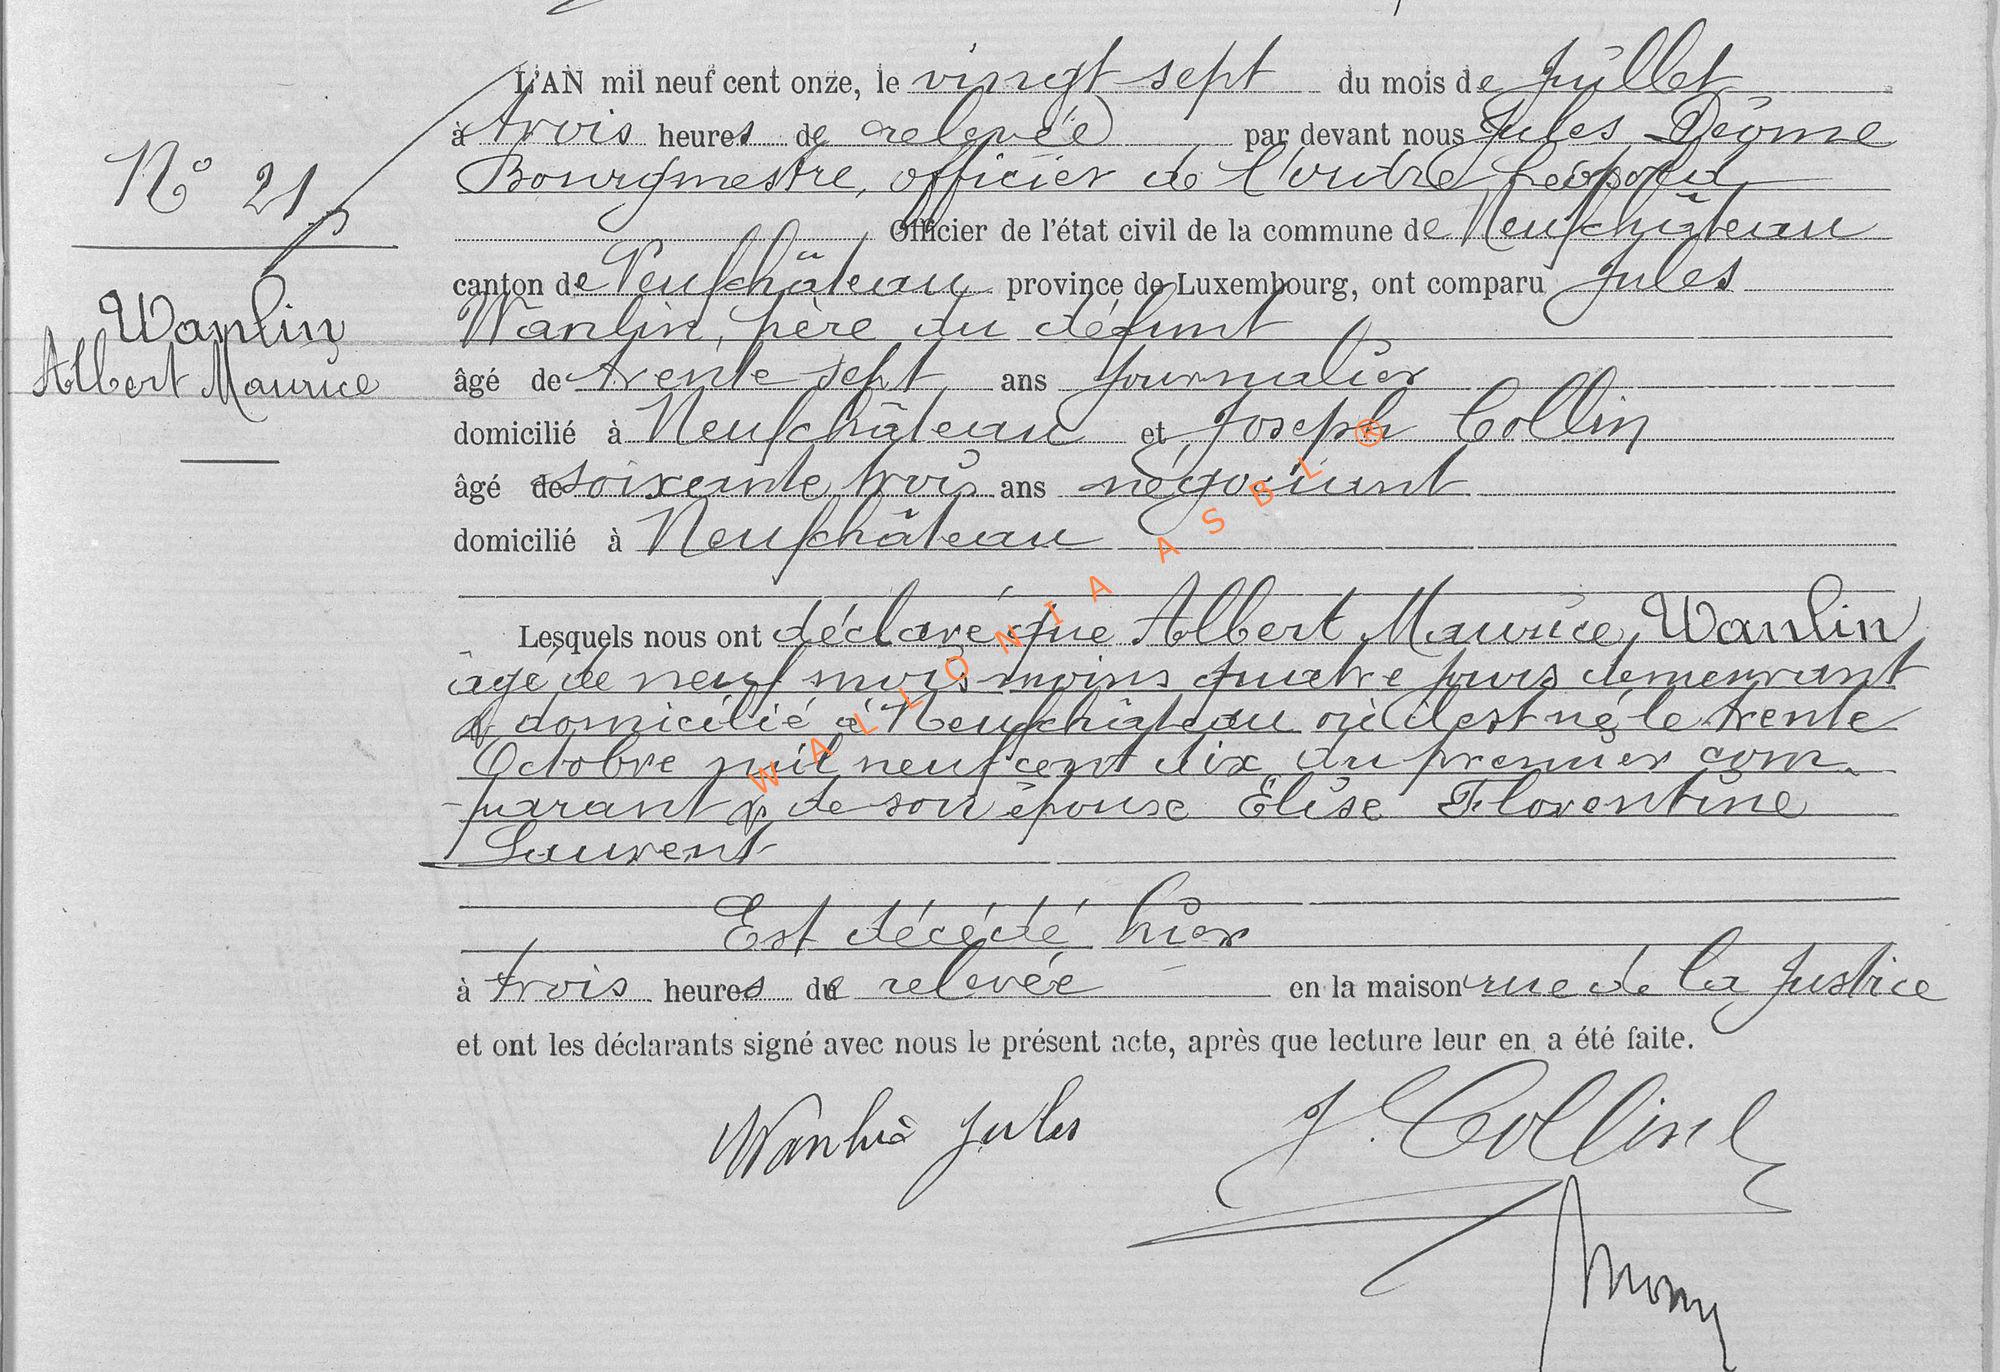 N° 21
Wanlin
Albert Maurice
L'AN mil neuf cent onze, le vingt sept du mois de Juillet
à trois heures de relevée par devant nous Jules Déome
Bourgmestre, officier de l'ordre Léopold
Officier de l'état civil de la commune de Neufchâteau
canton de Neufchâteau province de Luxembourg, ont comparu Jules
Wanlin, père du défunt
âgé de trente sept ans journalier
domicilié à Neufchâteau et Joseph Collin
âgé de soixante trois ans négociant
domicilié à Neufchâteau
Lesquels nous ont déclaré que Albert Maurice Wanlin
âgé de neuf mois moins quatre jours demeurant
& domicilié à Neufchâteau où il est né le trente
Octobre mil neuf cent dix, du premier com-
parant & de son épouse Elise Florentine
Laurent
Est décédé hier
à trois heures de relevée en la maison rue de la Justice
et ont les déclarants signé avec nous le présent acte, après que lecture leur en a été faite.
Wanlin Jules J. Collin
WALLONIA ASBL ®